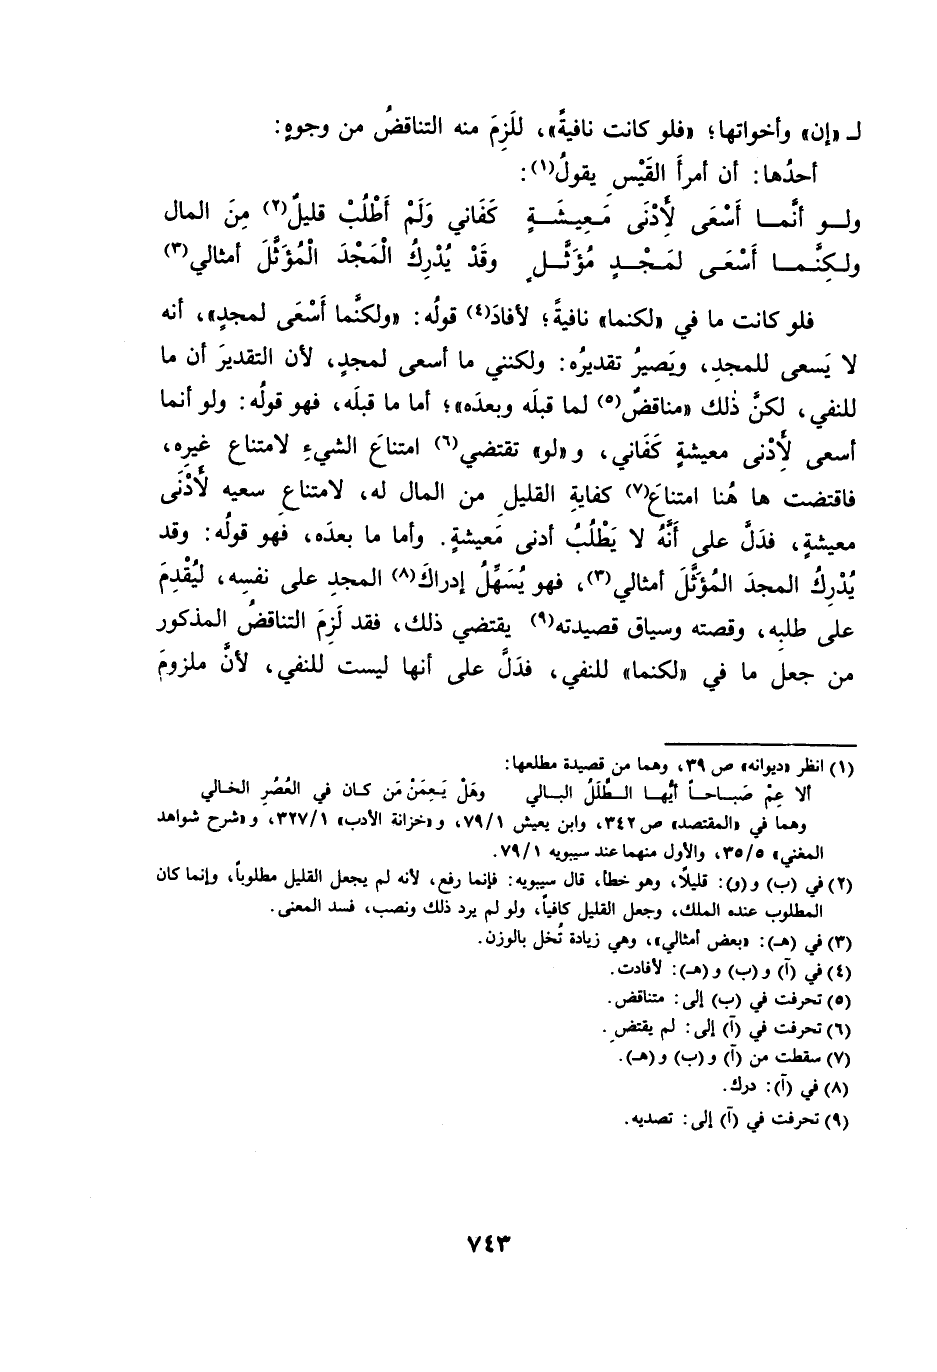 لـ «إن» وأخواتها؛ «فلو كانت نافيةً»، للَزِمَ منه التناقضُ من وجوهٍ:
أحدُها: أن أمرأَ القَيْسِ يقولُ(١):
ولـو أنَّمـا أَسْعَى لأَدْنَى مَـعِيشَـةٍ كَفَاني وَلَمْ أَطْلُبْ قليلٌ(٢) مِنَ المال
ولـكِنَّـمـا أَسْعَـى لمَـجْـدٍ مُؤَثَّـلٍ وقَدْ يُدْرِكُ الْمَجْدَ الْمُؤَثَّلَ أمثالي(٣)
فلو كانت ما في «لكنما» نافيةً؛ لأفادَ(٤) قولُه: «ولكنَّما أَسْعَى لمجدٍ»، أنه
لا يَسعى للمجدِ، ويَصيرُ تقديرُه: ولكنني ما أسعى لمجدٍ، لأن التقديرَ أن ما
للنفي، لكنَّ ذلك «مناقضٌ(٥) لما قبلَه وبعدَه»؛ أما ما قبلَه، فهو قولُه: ولو أنما
أسعى لأَدْنى معيشةٍ كَفَاني، و«لو» تقتضي(٦) امتناعَ الشيءِ لامتناعِ غيرِه،
فاقتضت ها هُنا امتناعَ(٧) كفايةِ القليلِ من المال له، لامتناعِ سعيه لأَدْنَى
معيشةٍ، فدَلَّ على أَنَّهُ لا يَطْلُبُ أدنى مَعيشةٍ. وأما ما بعدَه، فهو قولُه: وقد
يُدْرِكُ المجدَ المُؤَثَّلَ أمثالي(٣)، فهو يُسَهِّلُ إدراكَ(٨) المجدِ على نفسِه، ليُقْدِمَ
على طلبِه، وقصته وسياق قصيدته(٩) يقتضي ذلك، فقد لَزِمَ التناقضُ المذكور
من جعلِ ما في «لكنما» للنفي، فدَلَّ على أنها ليست للنفي، لأنَّ ملزومَ
(١) انظر «ديوانه» ص ٣٩، وهما من قصيدة مطلعها:
ألا عِمْ صَبـاحـاً أيُّهـا الـطَّلَلُ البـالي وهَلْ يَعِمَنْ مَن كـان في العُصُرِ الخالي
وهما في «المقتصد» ص ٣٤٢، وابن يعيش ٧٩/١، و«خزانة الأدب» ٣٢٧/١، و«شرح شواهد
المغني» ٣٥/٥، والأول منهما عند سيبويه ٧٩/١.
(٢) في (ب) و(و): قليلًا، وهو خطأ، قال سيبويه: فإنما رفع، لأنه لم يجعل القليل مطلوباً، وإنما كان
المطلوب عنده الملك، وجعل القليل كافياً، ولو لم يرد ذلك ونصب، فسد المعنى.
(٣) في (هـ): «بعض أمثالي»، وهي زيادة تُخل بالوزن.
(٤) في (آ) و(ب) و(هـ): لأفادت.
(٥) تحرفت في (ب) إلى: متناقض.
(٦) تحرفت في (آ) إلى: لم يقتضِ.
(٧) سقطت من (آ) و(ب) و(هـ).
(٨) في (آ): درك.
(٩) تحرفت في (آ) إلى: تصديه.
٧٤٣